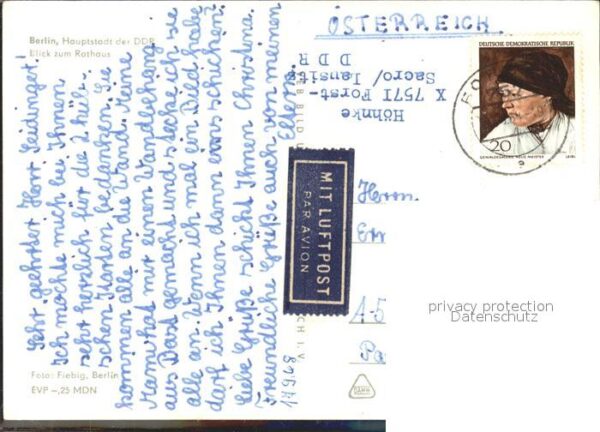 Berlin, Hauptstadt der DDR
Blick zum Rathaus
Sehr geehrter Herr Leidinger!
Ich möchte mich bei Ihnen
sehr herzlich für die 2 hüb-
schen Karten bedanken. Sie
kommen alle an die Wand. Meine
Wand mit einem Wandbehang
aus Bast gemacht und stecke ich sie
alle an. Wenn ich mal ein Bild habe
darf ich Ihnen dann eins schicken?
Liebe Grüße schickt Ihnen Christina.
Freundliche Grüße auch von meinen
Eltern.
Foto: Fiebig, Berlin
EVP –,25 MDN
ÖSTERREICH
Höhnke
X 7571 Forst-
Sacro/Lausitz
DDR
DEUTSCHE DEMOKRATISCHE REPUBLIK
20
GEMÄLDEGALERIE NEUE MEISTER
LEIBL
MIT LUFTPOST
PAR AVION
Herrn
A-5
privacy protection
Datenschutz